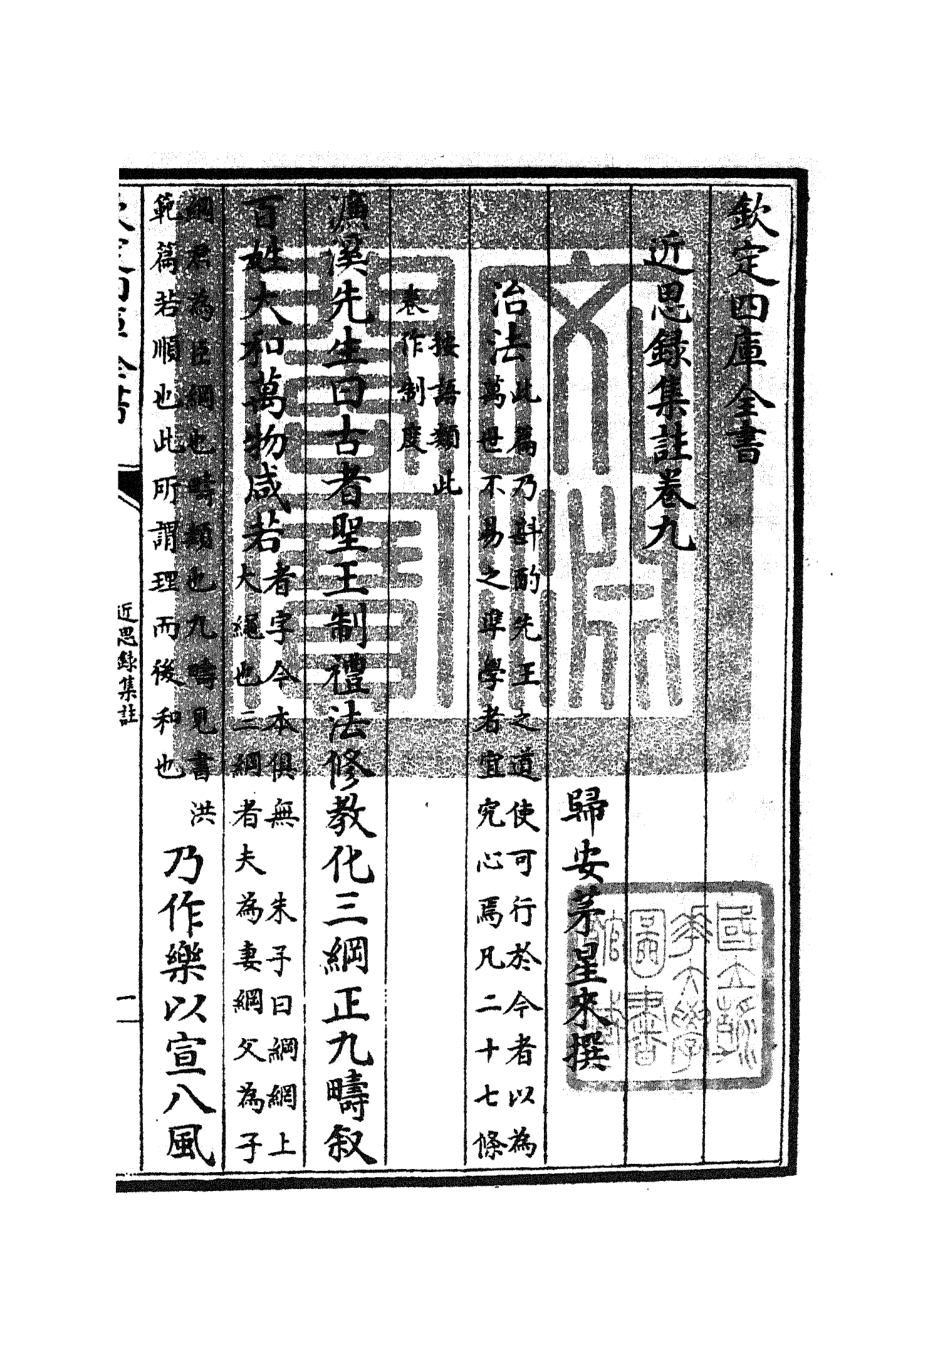 欽定四庫全書
近思錄集註卷九
歸安茅星來撰
治法
此篇乃斟酌先王之道使可行於今者以為
萬世不易之準學者宜究心焉凡二十七條
按語類此
卷作制度
濂溪先生曰古者聖王制禮法修教化三綱正九疇叙
百姓大和萬物咸若
者字今本俱無　朱子曰綱網上
大繩也三綱者夫為妻綱父為子
綱君為臣綱也疇類也九疇見書洪
範篇若順也此所謂理而後和也
乃作樂以宣八風
近思錄集註
一